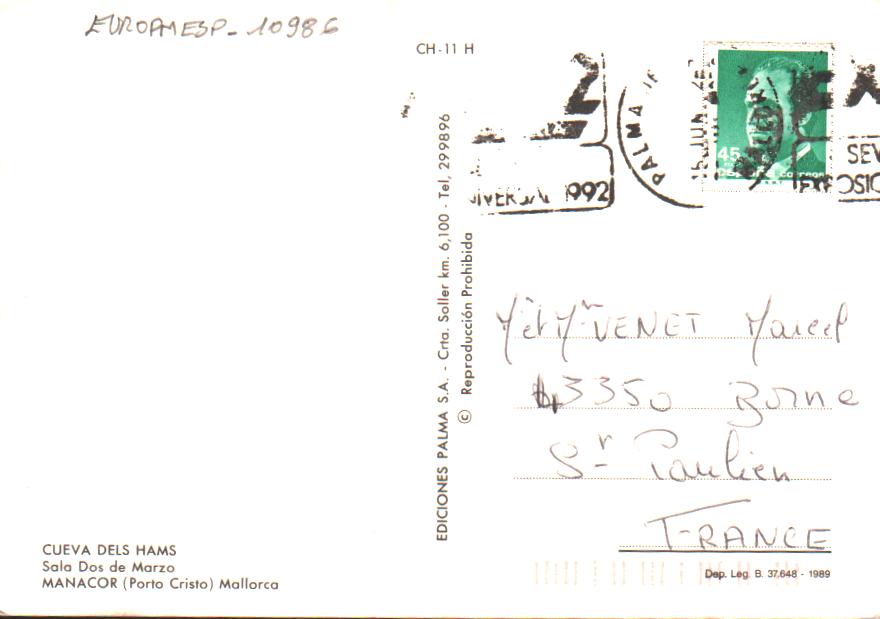 EUROPAESP- 10986
CH-11 H
2
PALMA DE
15 JUN
EX
SEV
EXPOSIC
1992
45
correos
EDICIONES PALMA S.A. - Crta. Soller km. 6,100 - Tel, 299896
© Reproducción Prohibida
Mr et Mme VENET Marcel
43350 Borne
St Paulien
FRANCE
CUEVA DELS HAMS
Sala Dos de Marzo
MANACOR (Porto Cristo) Mallorca
Dep. Leg. B. 37.648 - 1989